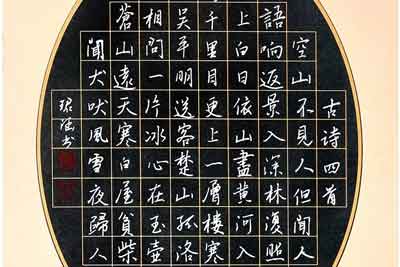 古诗四首
空山不見人但聞人
語响返景入深林復照
上白日依山盡黃河入
千里目更上一層樓寒
吴平明送客楚山孤洛
相問一片冰心在玉壺
蒼山遠天寒白屋貧柴
聞犬吠風雪夜歸人
书